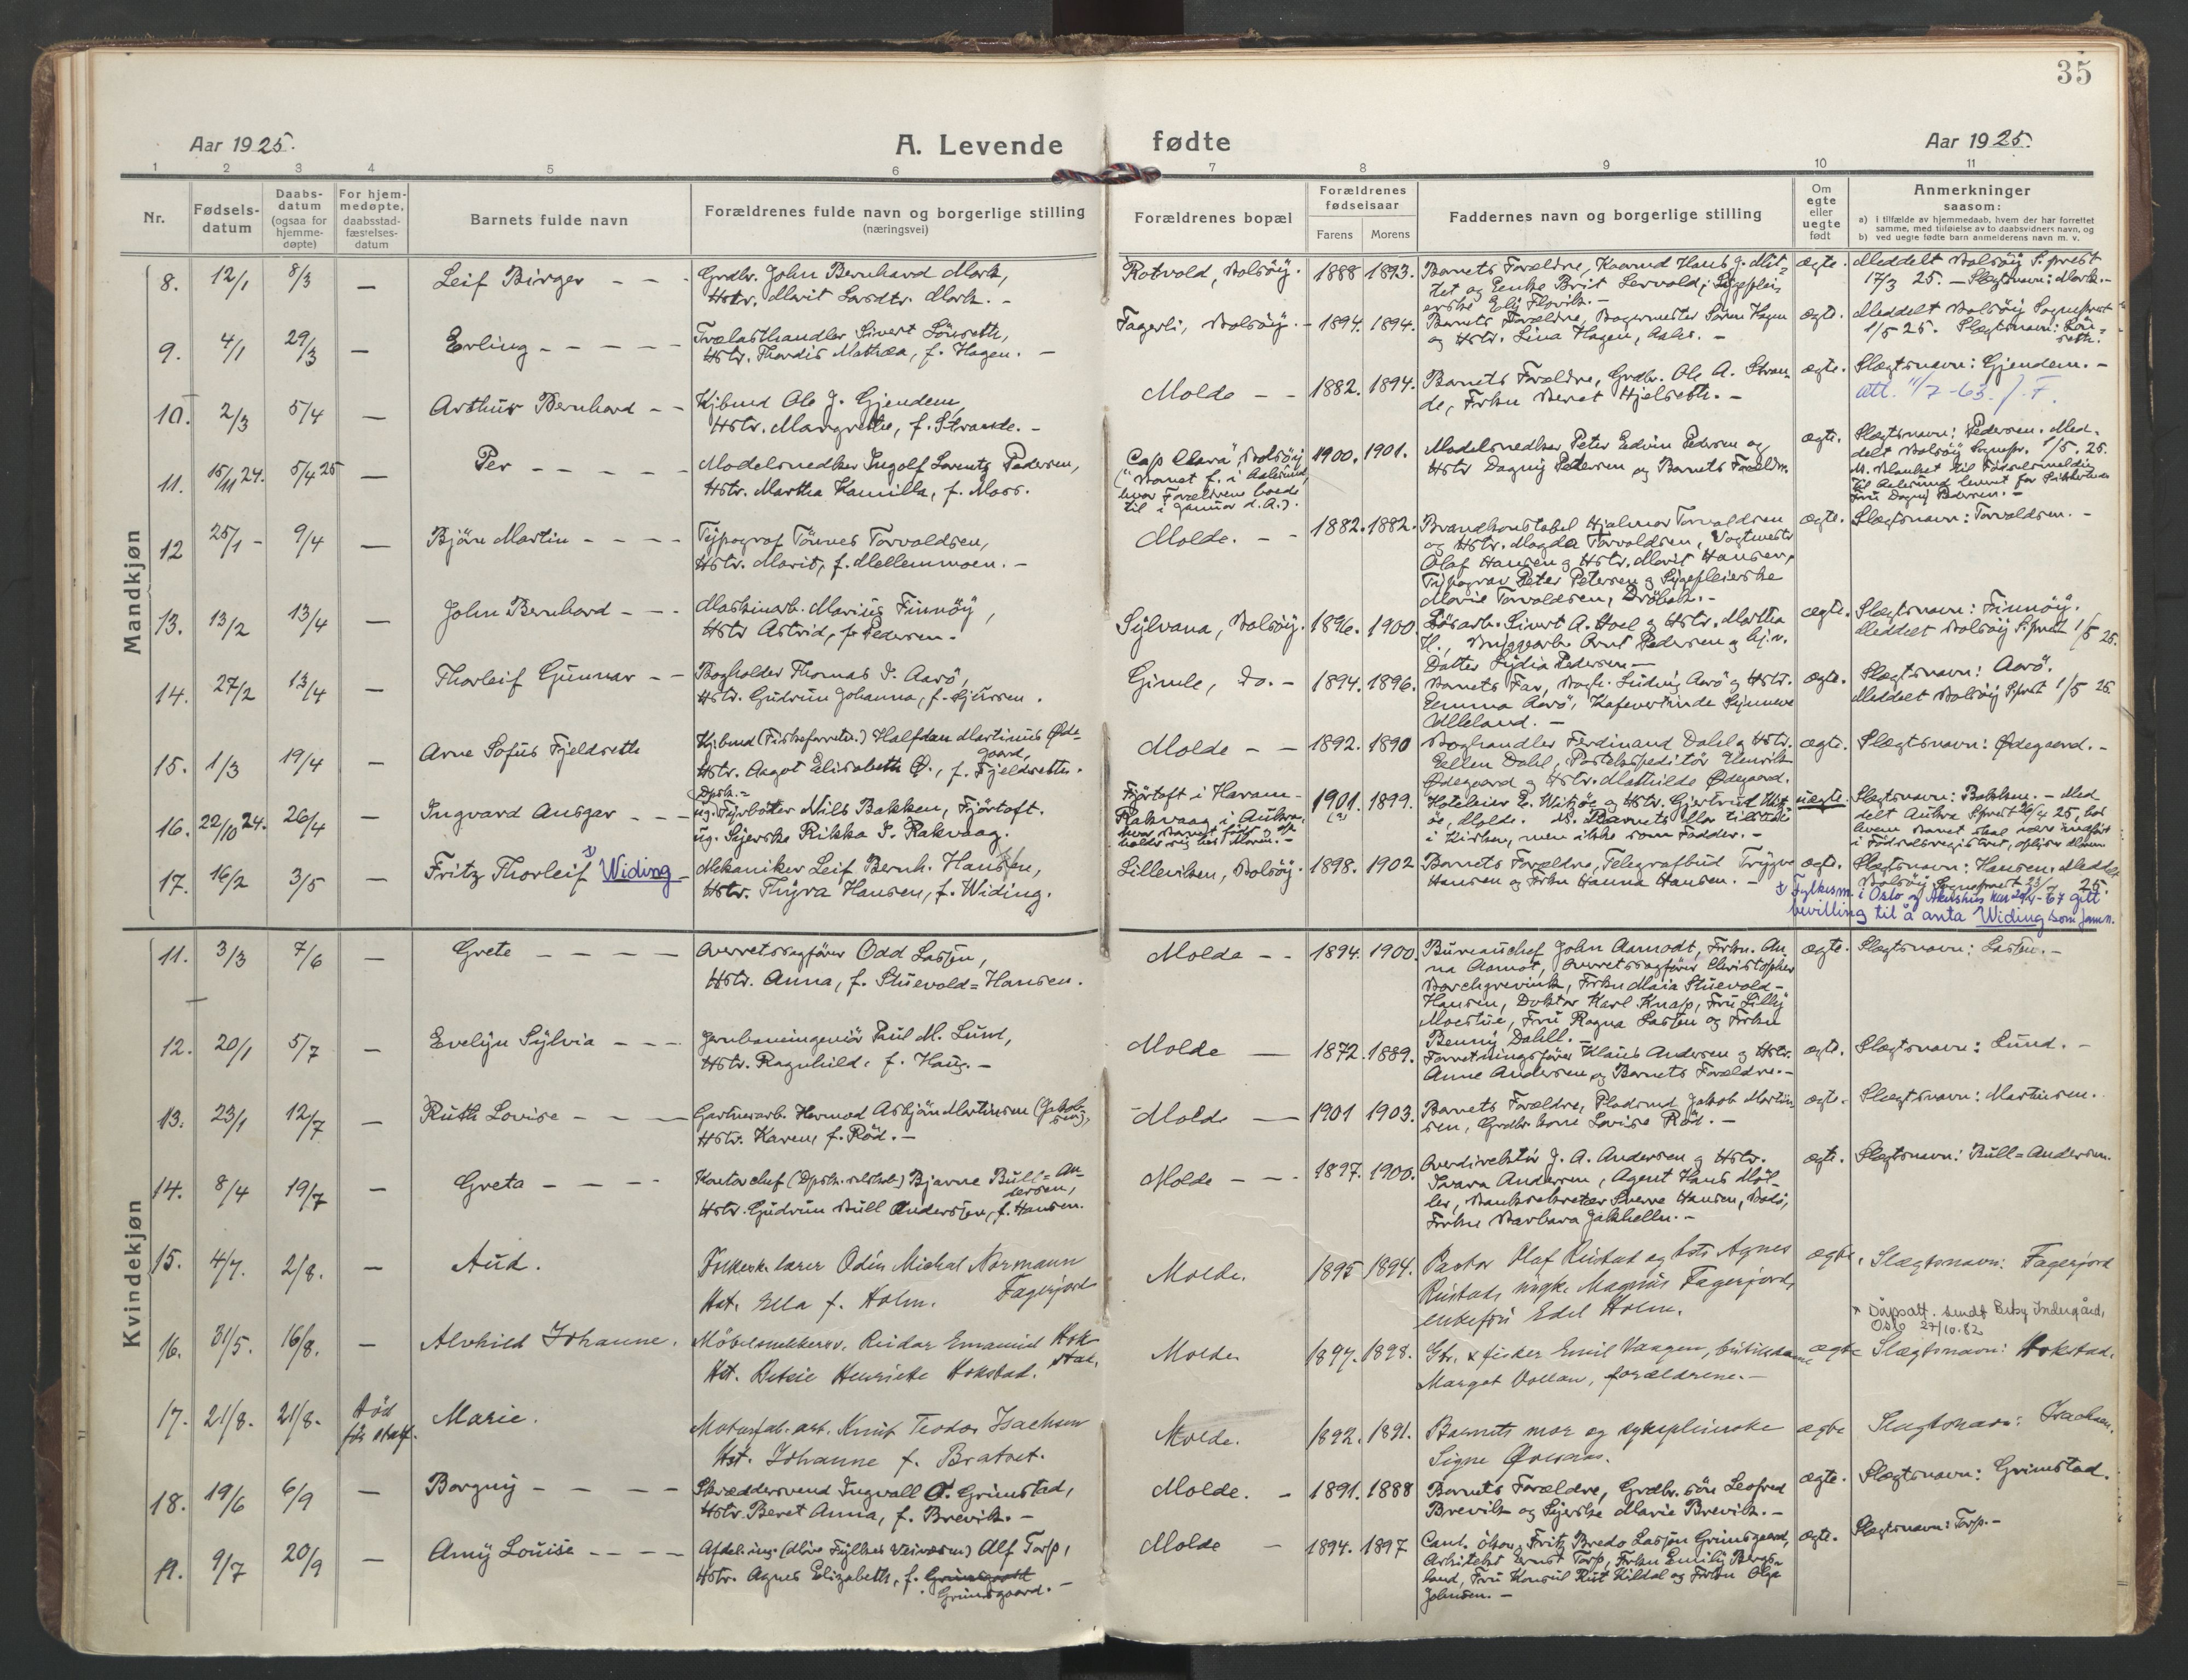 35
Aar 1925.
A. Levende fødte
Aar 1925.
1 2 3 4 5 6 7 8 9 10 11
Nr.
Fødsels-
datum
Daabs-
datum
(ogsaa for
hjemme-
døpte)
For hjem-
medøpte,
daabsstad-
fæstelses-
datum
Barnets fulde navn
Forældrenes fulde navn og borgerlige stilling
(næringsvei)
Forældrenes bopæl
Forældrenes
fødselsaar
Farens Morens
Faddernes navn og borgerlige stilling
Om
egte
eller
uegte
født
Anmerkninger
saasom:
a) I tilfælde av hjemmedaab, hvem der har forrettet
samme, med tilføielse av to daabsvidners navn, og
b) ved uegte fødte barn anmelderens navn m. v.
Mandkjøn
8. 12/1 8/3 — Leif Birger - -
Grdbr. John Bernhard Mork,
Hstr. Marit Larsdtr. Mork. -
Rotvold, Bolsöy. 1888 1893.
Barnets Forældre,
ægte. Meddelt Bolsöy S.prest
17/3 25. — Slægtsnavn: Mork. -
9. 4/1 29/3 — Erling - - - - -
Trælasthandler Sivert Lönseth,
Hstr. Thordis Mathea, f. Hagen. -
Fagerli, Bolsöy. - 1894. 1894.
Barnets Forældre, Bagermester Sören Hagen
og Hstr. Lina Hagen, Aales. -
ægte. Meddelt Bolsöy Sogneprest
1/5 25. Slægtsnavn: Lön-
seth.
10. 2/3 5/4 — Arthur Bernhard - -
Kjbmd Ole J. Gjendem,
Hstr. Margrethe, f. Strande. -
Molde - - 1882. 1894.
Barnets Forældre, Grdbr. Ole A. Stran-
de, Frkn Beret Hjelseth. -
ægte. Slægtsnavn: Gjendem. -
att. 11/7-63. J. F.
11. 15/11 24. 5/4 25 — Per - - - - -
Modelsnedker Ingolf Lorentz Pedersen,
Hstr. Martha Kamilla, f. Moss.
"Cap Clara", Bolsöy
(Barnet f. i Aalesund,
hvor Forældrene boede
til i januar d. A.).
1900. 1901.
Modelsnedker Peter Edvin Pedersen og
Hstr Dagny Petersen og Barnets Forældre.
ægte. Slægtsnavn: Pedersen. Med-
delt Bolsöy Sognepr. 1/5. 25.
Fru Dagny Pedersen. -
12 25/1 - 9/4 — Björn Martin - - - -
Typograf Tönnes Torvaldsen,
Hstr. Marit, f. Mellemmoen. -
Molde. - - 1882. 1882.
Brandkonstabel Hjalmar Torvaldsen
og Hstr. Magda Torvaldsen, Vogtmester
Olaf Hansen og Hstr. Marit Hansen,
Typograf Peter Petersen og Sygepleierske
Marie Torvaldsen, Dröbak. -
ægte. Slægtsnavn: Torvaldsen. -
13. 13/2 13/4 — John Bernhard - - -
Maskinarb. Marius Finnöy,
Hstr Astrid, f. Pedersen -
Sylvana, Bolsöy. 1896. 1900
Lösarb. Sivert A. Hoel og Hstr. Martha
H., Bryggearb. Arnt Pedersen og hj.v.
Datter Lydia Pedersen -
ægte. Slægtsnavn: Finnöy.
Meddelt Bolsöy S.prest 1/5 25.
14. 27/2 13/4 — Thorleif Gunnar - -
Bogholder Thomas I. Aarö,
Hstr. Gudrun Johanna, f. Sjursen.
Gimle, do. - 1894. 1896.
Barnets Far, Bagh. Ludvig Aarö og Hstr.
Emma Aarö, Kafevertinde Synneve
Ulleland. -
ægte. Slægtsnavn: Aarö.
Meddelt Bolsöy S.prest 1/5 25.
15. 1/3 19/4 — Arne Sofus Fjeldseth
Kjbmd (Fiskeforretn.) Halfdan Martinus Øde-
gaard,
Hstr. Aagot Elisabeth Ø., f. Fjeldseth.
Molde - - 1892. 1890
Boghandler Ferdinand Dahl og Hstr.
Ellen Dahl, Postekspeditör Henrik
Ødegaard og Hstr. Mathilde Ødegaard.
ægte. Slægtsnavn: Ødegaard. -
16. 22/10 24. 26/4 — Ingvard Ansgar - - -
Dpsk.-
ug. Fyrböter Nils Bakken, Fjörtoft.
ug. Syerske Rikka P. Rakvaag.
Fjörtoft i Haram -
Rakvaag i Aukra,
1901. (?) 1899.
i Kirken, men ikke som Fadder. -
uegte. Slægtsnavn: Bakken. - Med
delt Aukra S.prest 26/4 25, hos
hvem Barnet skal være indført
i Födselsregistret, oplyser Moren
17. 16/2 3/5 — Fritz Thorleif x) Widing -
Mekaniker Leif Bernh. Hansen,
Hstr. Thyra Hansen, f. Widing.
Lilleviken, Bolsöy. 1898. 1902
Barnets Forældre, Telegrafbud Trygve
Hansen og Frkn Hanna Hansen. -
ægte. Slægtsnavn: Hansen. Meddelt
x Fylkesm. i Oslo og Akershus har 20/4-67 gitt
bevilling til å anta Widing som famn.
Kvindekjøn
11. 3/3 7/6 — Grete - - - -
Overretssagförer Odd Lassen,
Hstr. Anna, f. Stuevold-Hansen.
Molde - - 1894. 1900
Bureauchef John Aamodt, Frkn. An-
na Aamot, Overretssagförer Christopher
Borchgrevink, Frkn Maia Stuevold-
Hansen, Doktor Karl Knap, Fru Lilly
Moestue, Fru Ragna Lassen og Frkn
Benny Dahll. -
ægte. Slægtsnavn: Lassen. -
12. 20/1 5/7 — Evelyn Sylvia - - -
Jernbaneingeniör Paul M. Lund,
Hstr. Ragnhild, f. Haug. -
Molde — 1872 1889.
Forretningsförer Klaus Andersen og Hstr.
Anne Andersen og Barnets Forældre. -
ægte. Slægtsnavn: Lund. -
13. 23/1 12/7 — Ruth Lovise - - -
Gartnerarb. Hermod Asbjörn Martinsen (Jakob-
sen),
Hstr. Karen, f. Röd. -
Molde — 1901 1903.
Barnets Forældre, Pladsmd Jakob Martin
sen, Grdbr. kone Lovise Röd. -
ægte. Slægtsnavn: Martinsen.
14. 8/4 19/7 — Greta - - - -
Kontorchef (Dpsk.selskab) Bjarne Bull-An-
dersen,
Hstr. Gudrun Bull Andersen, f. Hansen.
Molde - - - 1897. 1900.
Overdirektör J. A. Andersen og Hstr.
Svava Andersen, Agent Hans Möl-
ler, Banksekretær Sverre Hansen, Bodö,
Frkn Barbara Jakhelln. -
ægte. Slægtsnavn: Bull-Andersen.
15. 4/7. 2/8. — Aud.
Folkesk. lærer Odin Michal Normann
Fagerjord
Hst. Ella f. Holm.
Molde. 1895 1894.
Pastor Olaf Rustad og hst. Agnes
Rustad, ungk. Magnus Fagerjord,
enkefru Edel Holm.
ægte. Slægtsnavn: Fagerjord
16. 31/5. 16/8. — Alvhild Johanne.
Möbelsnekkersv. Reidar Emanuel Hok
stad.
Hst. Betsie Henriette Hokstad.
Molde. 1897. 1898.
Gbr. & fisker Emil Vaagen, butikkdame
Margot Vollan, forældrene. -
ægte
x Dåpsatt. sendt Betsy Indergård,
Oslo 27/10.82
Slægtsnavn: Hokstad.
17. 21/8. 21/8. Död
för stadf. Marie.
Motorfab. arb. Knut Teodor Isachsen
Hst. Johanne f. Bratset.
Molde. 1892. 1891.
Barnets mor og sykepleierske
Signe
ægte Slægtsnavn: Isachsen.
18. 19/6 6/9 — Borgny - - - -
Skræddersvend Ingvald O. Grimstad,
Hstr. Beret Anna, f. Brevik. -
Molde. - 1891. 1888
Barnets Forældre, Grdbr. sön Leofred
Brevik og Syerske Marie Brevik. -
ægte. Slægtsnavn: Grimstad.
19. 9/7 20/9 — Amy Louise - - - -
Afdel.ing. (Möre Fylkes Veivæsen) Alf Torp,
Hstr. Agnes Elizabeth, f.
Grimsgaard. -
Molde - 1894. 1897
Cand. ökon. Fritz Bredo Lassen Grimsgaard,
Arkitekt Ernst Torp, Frkn Emily Bergs-
land, Fru Konsul Rut Kildal og Frkn Olga
Johnsen. -
ægte. Slægtsnavn: Torp. -